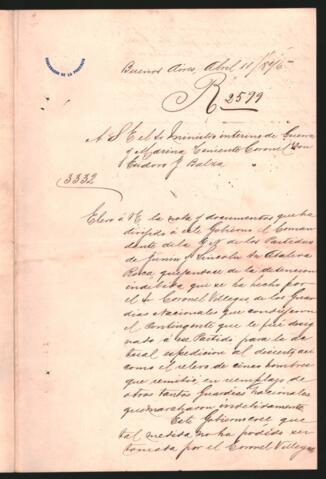 GOBERNADOR DE LA PROVINCIA
Buenos Aires, Abril 11/1876
R 2599
A S E el Sr Ministro interino de Guerra
y Marina Teniente Coronel Don
Eudoro J Balza
3332
Elevo á VE la nota y documentos que ha
dirijido á este Gobierno el Coman
dante de la de los Partidos
de Junin y Lincoln Dn Ataliva
Roca quejandose de la detencion
indebida que se ha hecho por
el Sr Coronel Villegas de los Guar
dias Nacionales que condujeron
el Contingente que le fué desig
nado á ese Partido para la
actual espedicion al desierto, asi
como el relevo de cinco hombres
que remitió en reemplazo de
otros tantos Guardias Nacionales
que marcharon indebidamente
Este Gobierno cree que
tal medida no ha podido ser
tomada por el Coronel Villegas